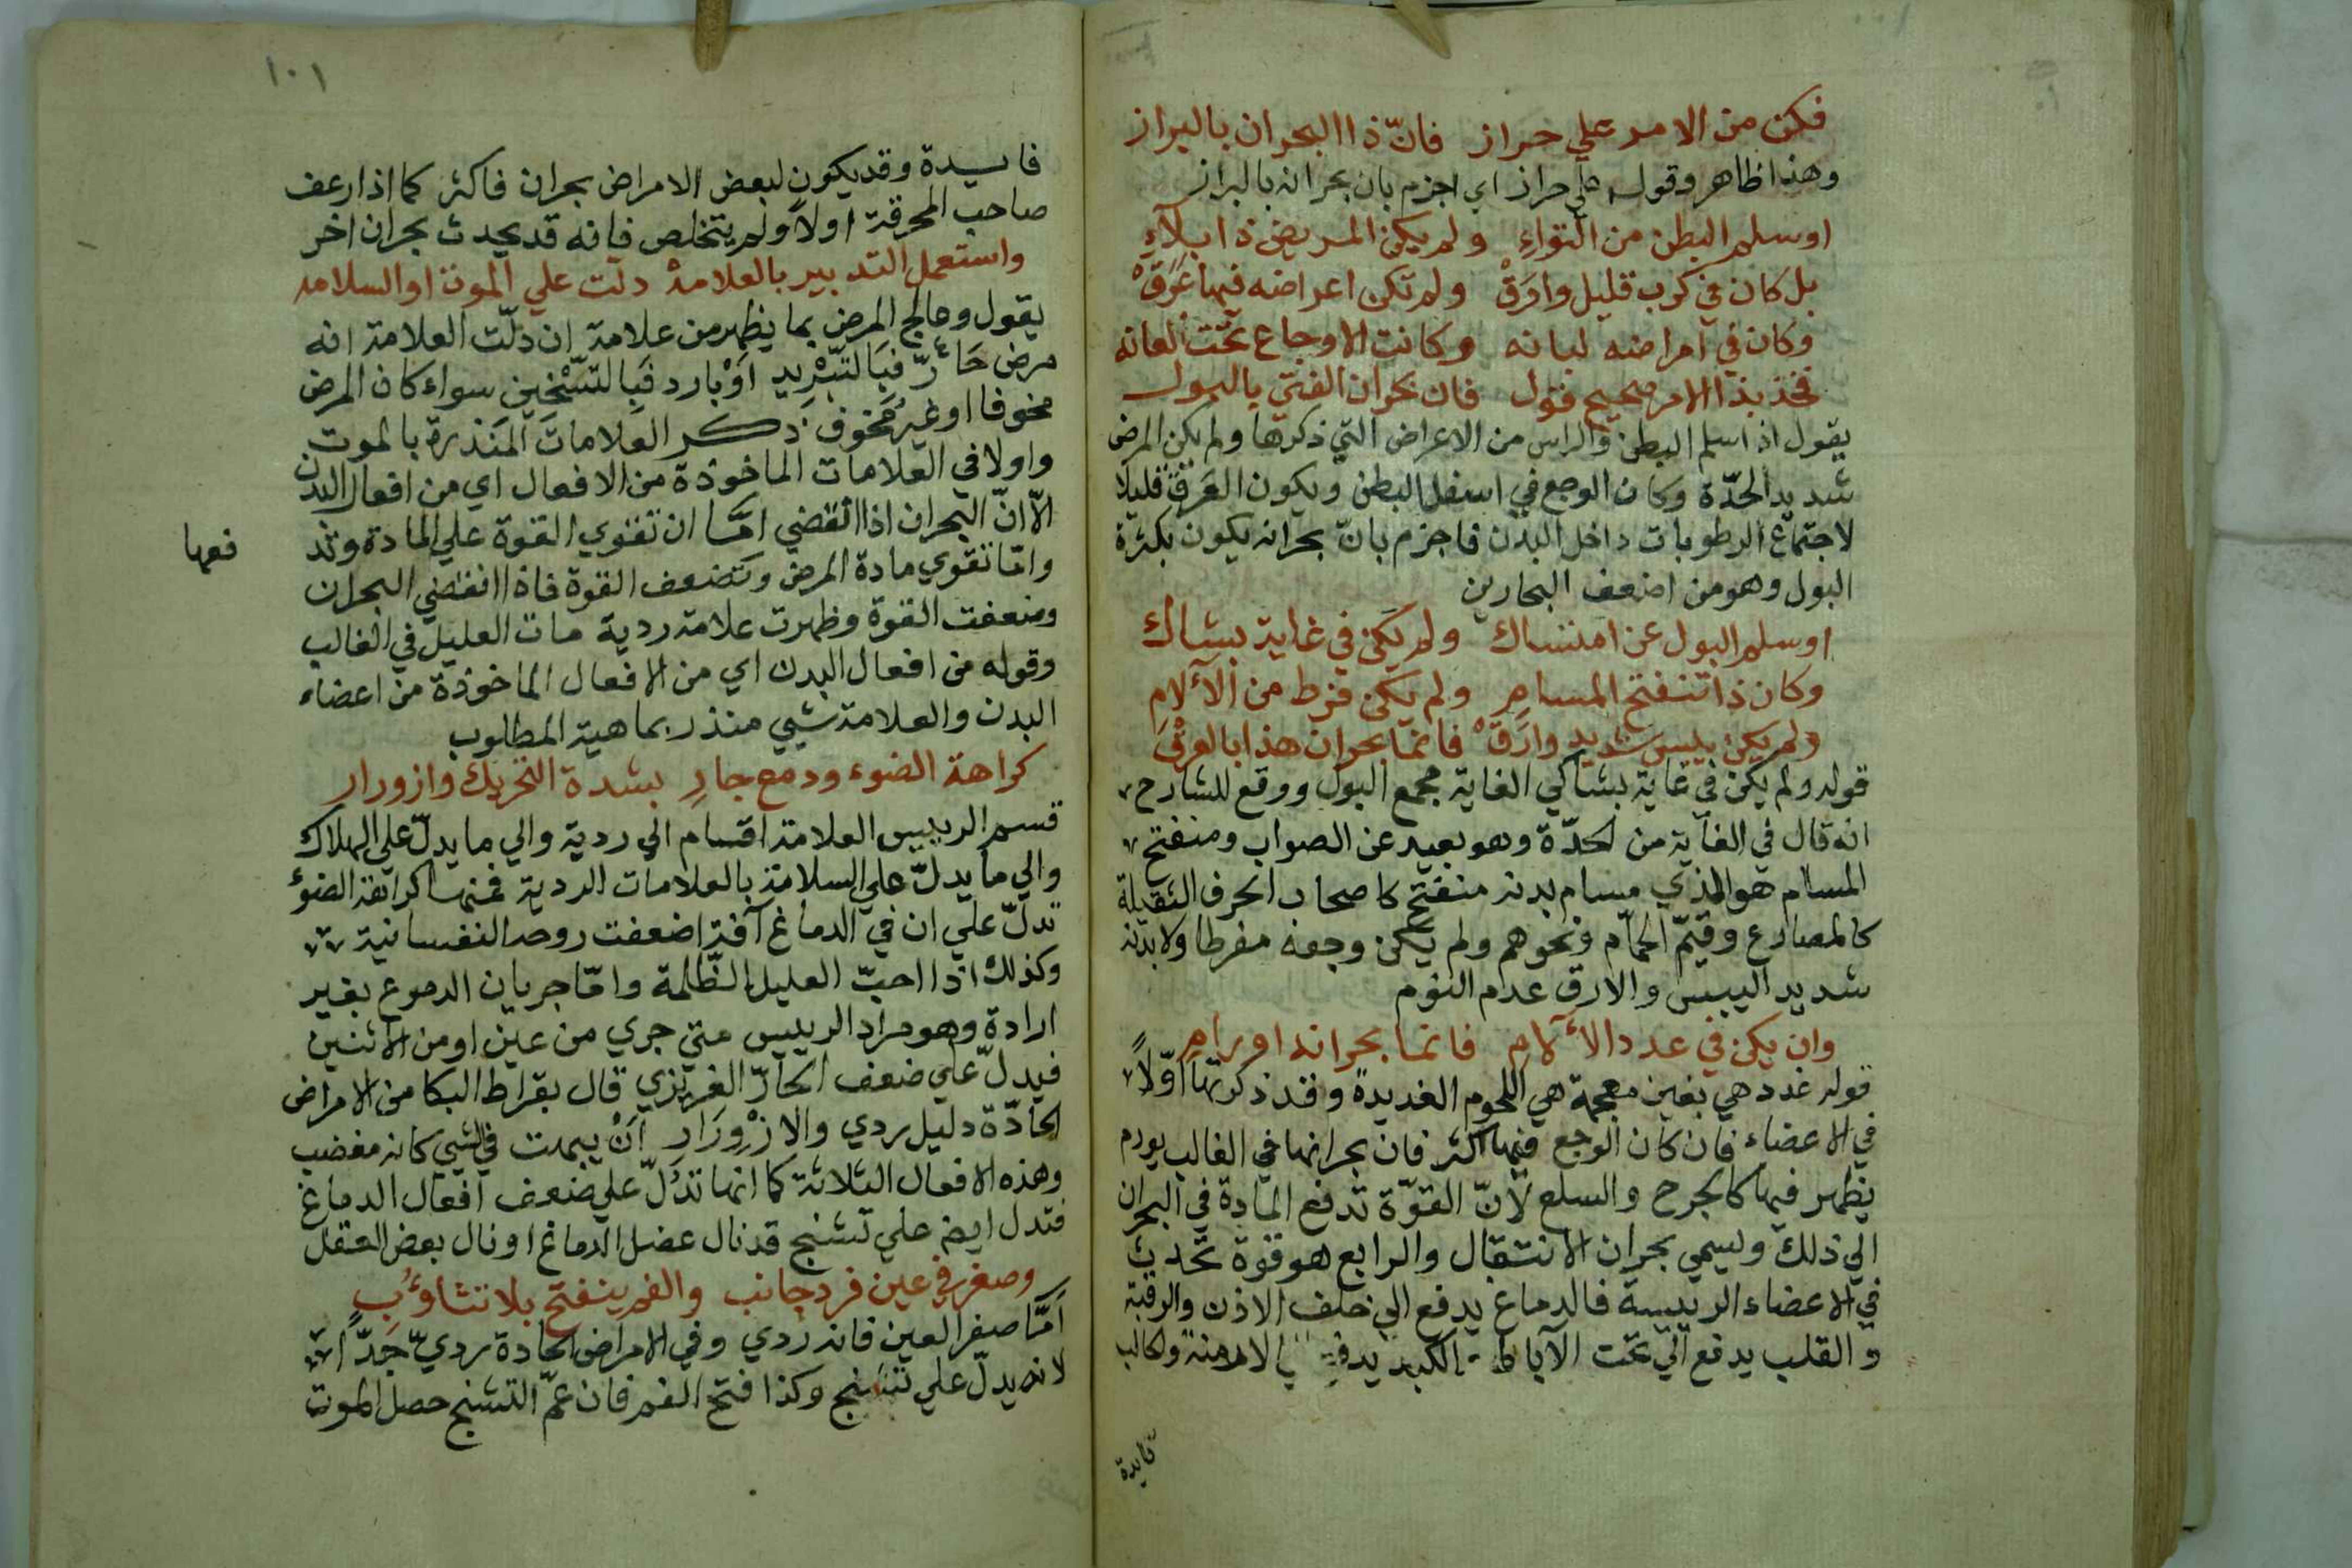 فكن من الامر علي حراز فانّ ذا البحران بالبراز
وهذا ظاهر وقوله علي حراز اي اجزم بان بحرانه بالبراز
اوسلم البطن من التواءِ ولم يكن المريض ذا بلاءِ
بل كان في كرب قليل وارقْ ولم تكن اعراضه فيها غرقْ
وكان في امراضه لبانه وكانت الاوجاع تحت العانه
فخذ بذا الامر صحيح قول فان بحران الفتي بالبول
يقول اذا سلم البطن والراس من الاعراض التي ذكرها ولم يكن المرض
شديد الحدّة وكان الوجع في اسفل البطن ويكون العرق قليلا
لاجتماع الرطوبات داخل البدن فاجزم بانّ بحرانه يكون بكثرة
البول وهو من اضعف البحارين
اوسلم البول عن امتساك ولم يكن في غاية بشاك
وكان ذا تنفتح المسامِ ولم يكن فرط من الآلامِ
ولم يكن بيبس شديد وارقْ فانما بحران هذا بالعرق
قوله ولم يكن في غاية بشاكي الغاية مجمع البول ووقع للشارح
انه قال في الغاية من الحدّة وهو بعيد عن الصواب ومنفتح
المسام هو الذي مسام بدنه منفتح كاصحاب الحرف الثقيلة
كالمصارع وقيّم الحمّام ونحوهم ولم يكن وجعه مفرطا ولا بدنه
شديد اليبس والارق عدم النوم
وان يكن في غدد الآلامِ فانما بحرانه اورامِ
قوله غدد هي بغين معجمة هي اللحوم الغديدة وقد ذكرتها اوّلاً
في الاعضاء فان كان الوجع فيها اكثر فان بحرانها في الغالب يورم
يظهر فيها كالجرح والسلع لانّ القوّة تدفع المادة في البحران
الي ذلك ويسمي بحران الانتقال والرابع هو قوة تحدث
في الاعضاء الرييسة فالدماغ يدفع الي خلف الاذن والرقبة
والقلب يدفع الي تحت الآباط والكبد يدفع الي
فايدة
١٠١
فايدة وقد يكون لبعض الامراض بحران فاكثر كما اذا رعف
صاحب المحرقة اولاً ولم يتخلص فانه قد يحدث بحران اخر
واستعمل التدبير بالعلامة دلت علي الموت او السلامه
يقول وعالج المرض بما يظهر من علامة ان دلّت العلامة انه
مرض حارّ فبالتبريد اوْ بارد فبالتسخين سواء كان المرض
مخوفا او غير مخوف ذكر العلامات المنذرة بالموت
واولا في العلامات الماخوذة من الافعال اي من افعال البدن
الّا انّ البحران اذا انقضي امّا ان تقوي القوة علي المادة وتد
فعها
وامّا تقوي مادة المرض وتضعف القوة فاذا انقضي البحران
وضعفت القوة وظهرت علامة ردية مات العليل في الغالب
وقوله من افعال البدن اي من الافعال الماخوذة من اعضاء
البدن والعلامة شيي منذر بماهية المطلوب
كراهة الضوء ودمع جارِ بشدة التحريك وازورار
قسم الرييس العلامة اقسام الي ردية والي ما يدلّ علي الهلاك
والي ما يدلّ علي السلامة بالعلامات الردية فمنها كراهة الضوءِ
تدلّ علي ان في الدماغ آفة اضعفت روحه النفسانية
وكذلك اذا احبّ العليل الظّلمة وامّا جريان الدموع بغير
ارادة وهو مراد الرييس متي جري من عين او من الاثنين
فيدلّ علي ضعف الحارّ الغريزي قال بقراط البكا من الامراض
الحادّة دليل ردي والازْورَار انْ يبهت في الشيي كانه مغضب
وهذه الافعال الثلاثة كما انها تدلّ علي ضعف افعال الدماغ
فتدل ايضا علي تشنج قد نال عضل الدماغ او نال بعض العضل
وصغر في عين فرد جانب والفم ينفتح بلا تثاؤُبِ
امّا صغر العين فانه ردي وفي الامراض الحادة رديّ جدّا
لانه يدلّ علي تشنج وكذا فتح الفم فان عمّ التشنج حصل الموت